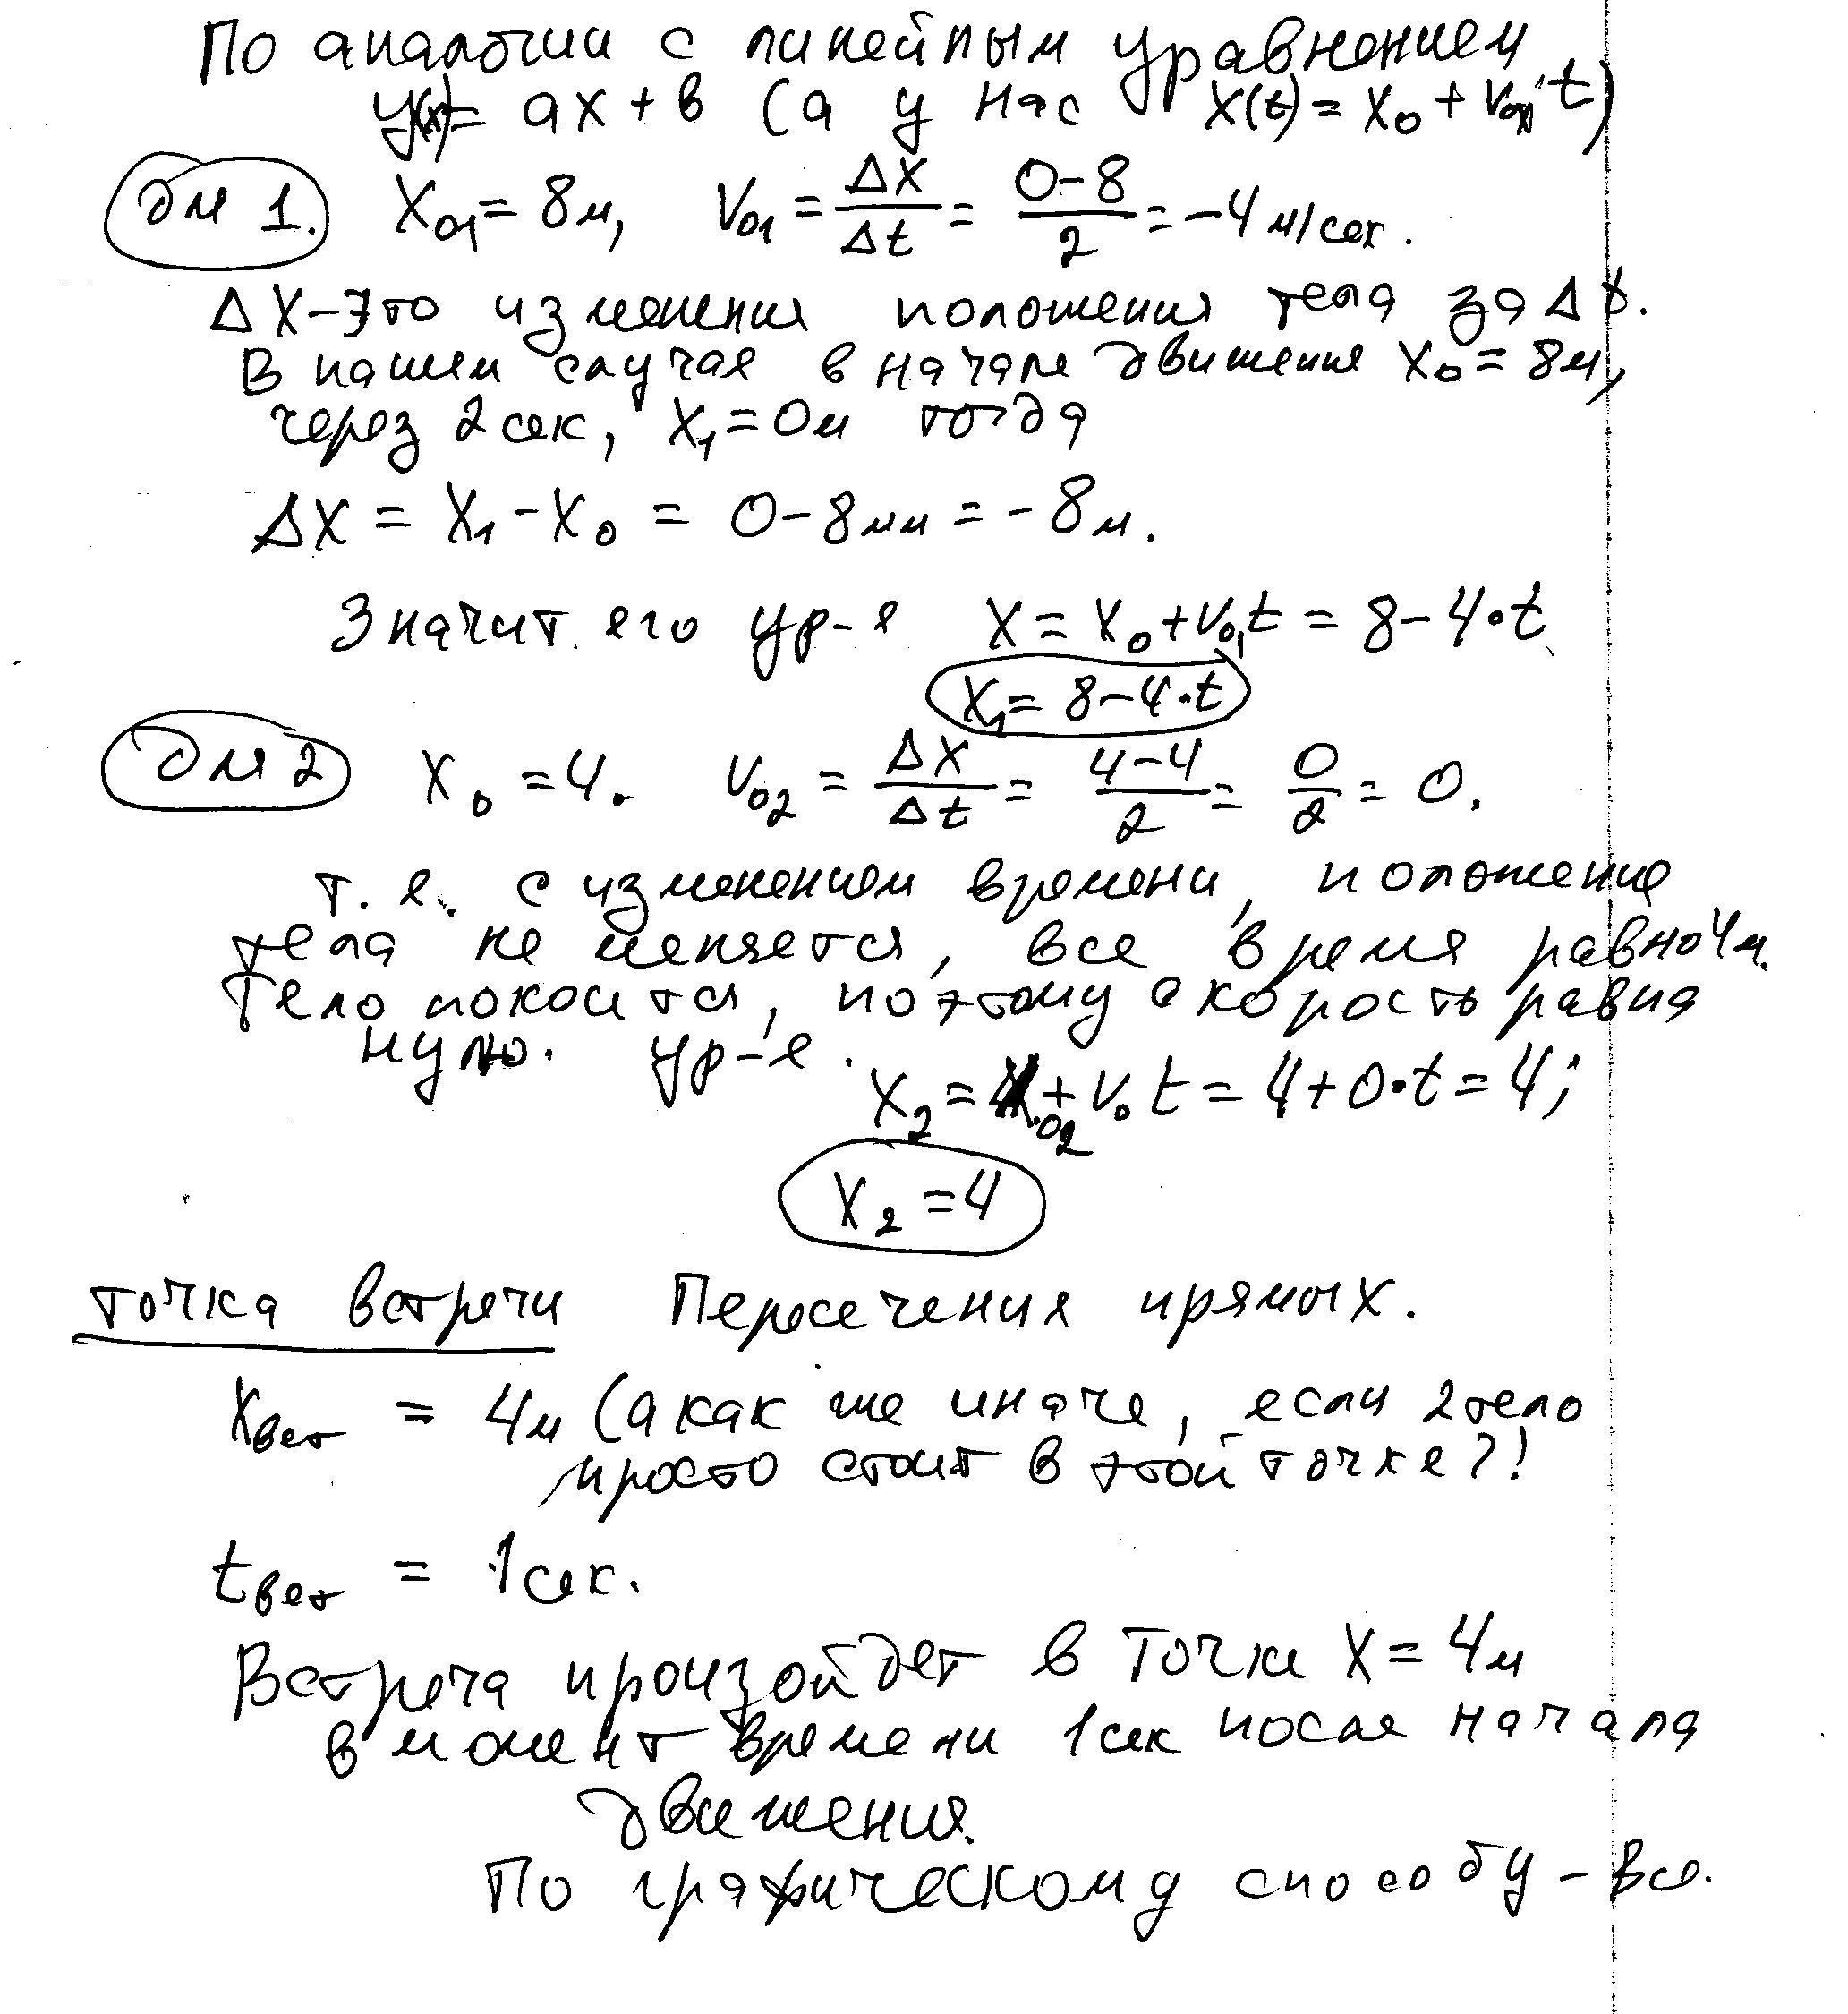 По аналогии с линейным уравнением
y(x)= ax + в (а у нас x(t) = x₀ + v₀ₓ·t)
для 1. X₀₁ = 8м, V₀₁ = ΔX/Δt = (0-8)/2 = -4 м/сек.
ΔX - это изменения положения тела за Δt.
В нашем случае в начале движения X₀ = 8м,
через 2 сек, X₁ = 0м тогда
ΔX = X₁ - X₀ = 0 - 8мм = - 8м.
Значит его ур-е X = X₀ + V₀₁t = 8 - 4·t
X₁ = 8 - 4·t
для 2 X₀ = 4. V₀₂ = ΔX/Δt = (4-4)/2 = 0/2 = 0.
т. е. с изменением времени, положение
тела не меняется, все время равно 4м.
Тело покоится, поэтому скорость равна
нулю. ур-е.
X₂ = X₀₂ + V₀t = 4 + 0·t = 4;
X₂ = 4
точка встречи Пересечения прямых.
Xвст = 4м (а как же иначе, если 2 тело
просто стоит в этой точке?!
tвст = 1 сек.
Встреча произойдет в точки X = 4м
в момент времени 1сек после начала
движения.
По графическому способу - все.